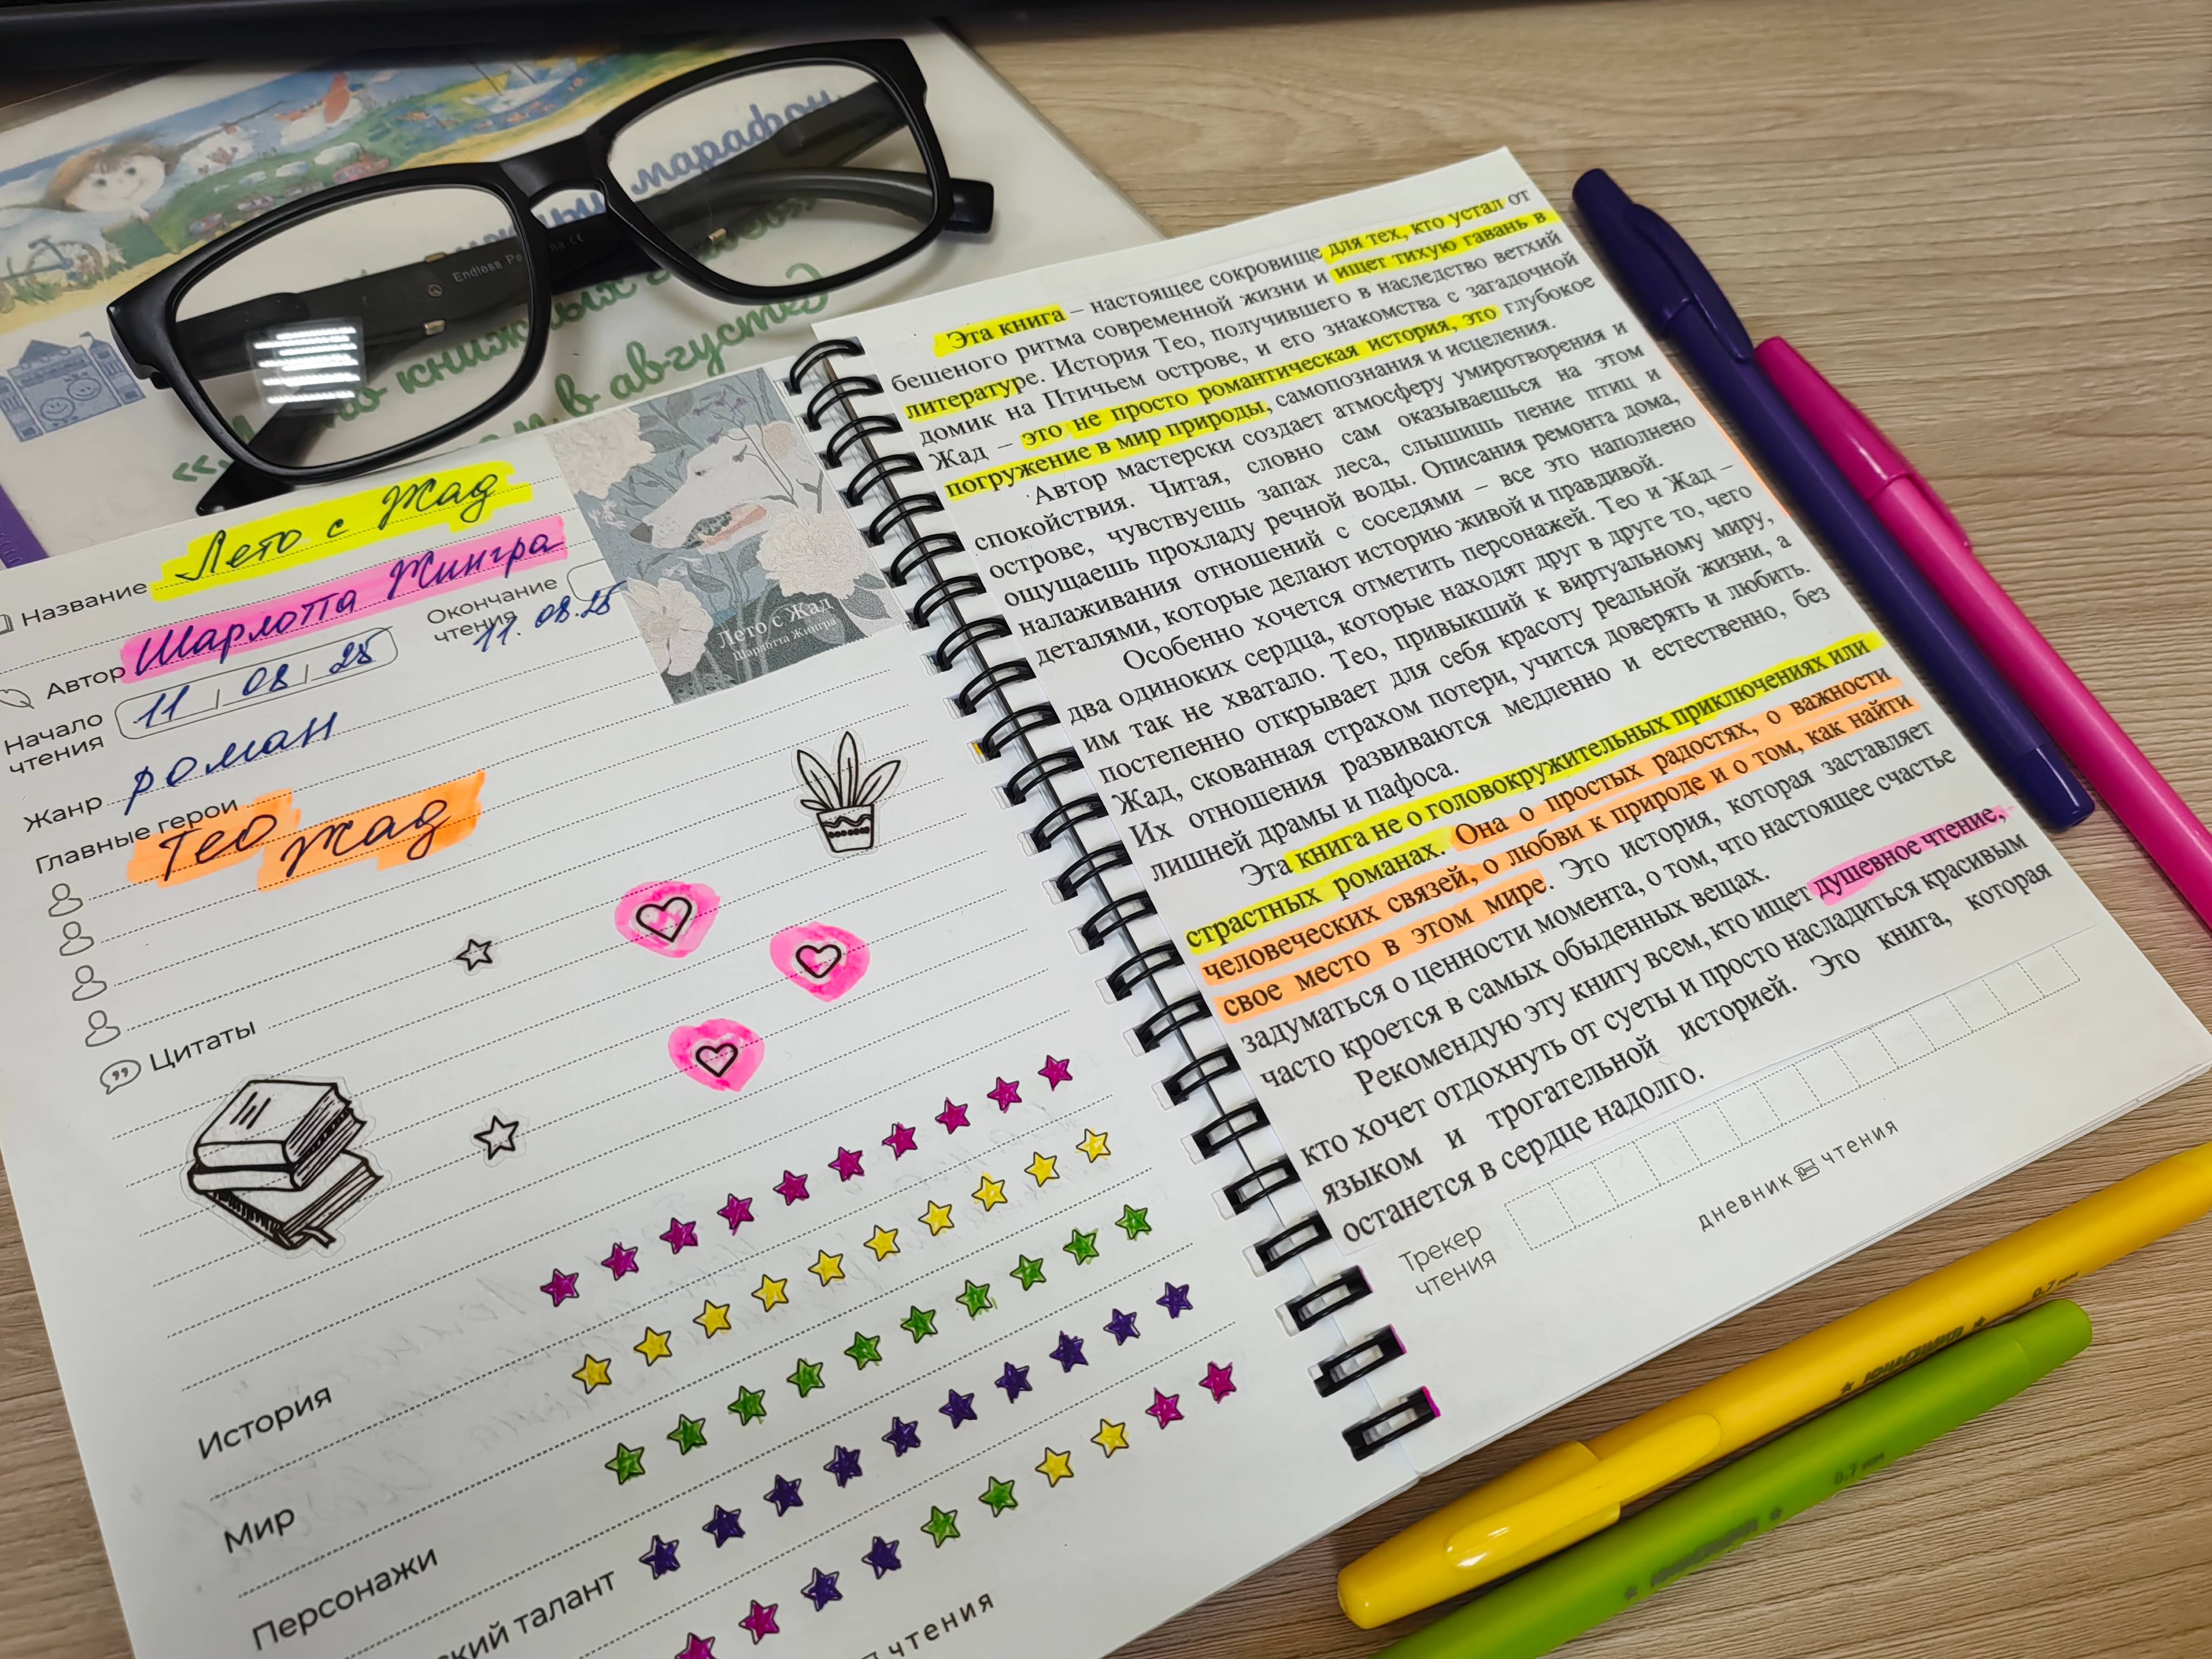 марафон
в августе»
Название Лето с Жад
Автор Шарлотта Жингра
Начало чтения 11 08 25
Окончание чтения 11.08.25
Жанр роман
Главные герои
Тео Жад
Цитаты
Лето с Жад
Шарлотта Жингра
История
Мир
Персонажи
ский талант
чтения
Эта книга – настоящее сокровище для тех, кто устал от
бешеного ритма современной жизни и ищет тихую гавань в
литературе. История Тео, получившего в наследство ветхий
домик на Птичьем острове, и его знакомства с загадочной
Жад – это не просто романтическая история, это глубокое
погружение в мир природы, самопознания и исцеления.
Автор мастерски создает атмосферу умиротворения и
спокойствия. Читая, словно сам оказываешься на этом
острове, чувствуешь запах леса, слышишь пение птиц и
ощущаешь прохладу речной воды. Описания ремонта дома,
налаживания отношений с соседями – все это наполнено
деталями, которые делают историю живой и правдивой.
Особенно хочется отметить персонажей. Тео и Жад –
два одиноких сердца, которые находят друг в друге то, чего
им так не хватало. Тео, привыкший к виртуальному миру,
постепенно открывает для себя красоту реальной жизни, а
Жад, скованная страхом потери, учится доверять и любить.
Их отношения развиваются медленно и естественно, без
лишней драмы и пафоса.
Эта книга не о головокружительных приключениях или
страстных романах. Она о простых радостях, о важности
человеческих связей, о любви к природе и о том, как найти
свое место в этом мире. Это история, которая заставляет
задуматься о ценности момента, о том, что настоящее счастье
часто кроется в самых обыденных вещах.
Рекомендую эту книгу всем, кто ищет душевное чтение,
кто хочет отдохнуть от суеты и просто насладиться красивым
языком и трогательной историей. Это книга, которая
останется в сердце надолго.
Трекер
чтения
дневник чтения
0.7 mm
0.7 mm